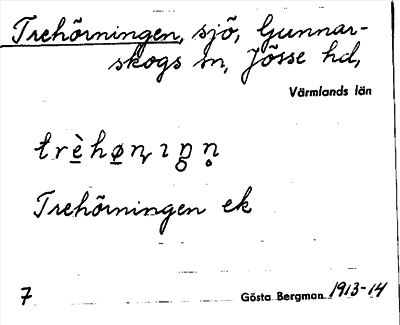 Trehörningen, sjö, Gunnar-
skogs sn, Jösse hd,
Värmlands län
Trehörningen ek
7
Gösta Bergman 1913-14